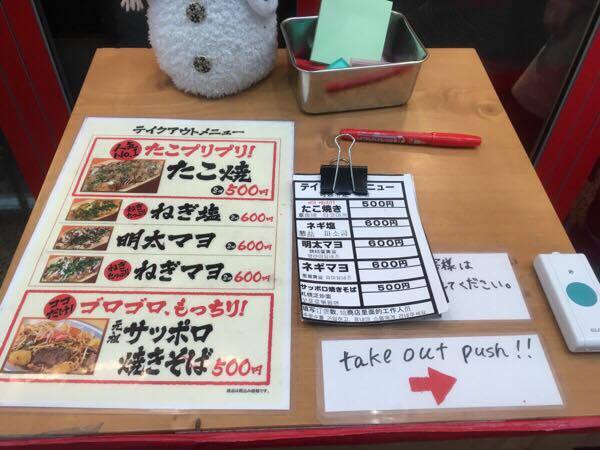 テイクアウトメニュー
人気No.1 たこプリプリ!
たこ焼
500円
ねぎ塩 600円
明太マヨ 600円
ねぎマヨ 600円
ココだけ! ゴロゴロ、もっちり!
元祖 サッポロ
焼きそば 500円
テイク
ニュー
たこ焼き 500円
ネギ塩 600円
明太マヨ 600円
ネギマヨ 600円
サッポロ焼きそば 500円
様は
ください。
take out push!!